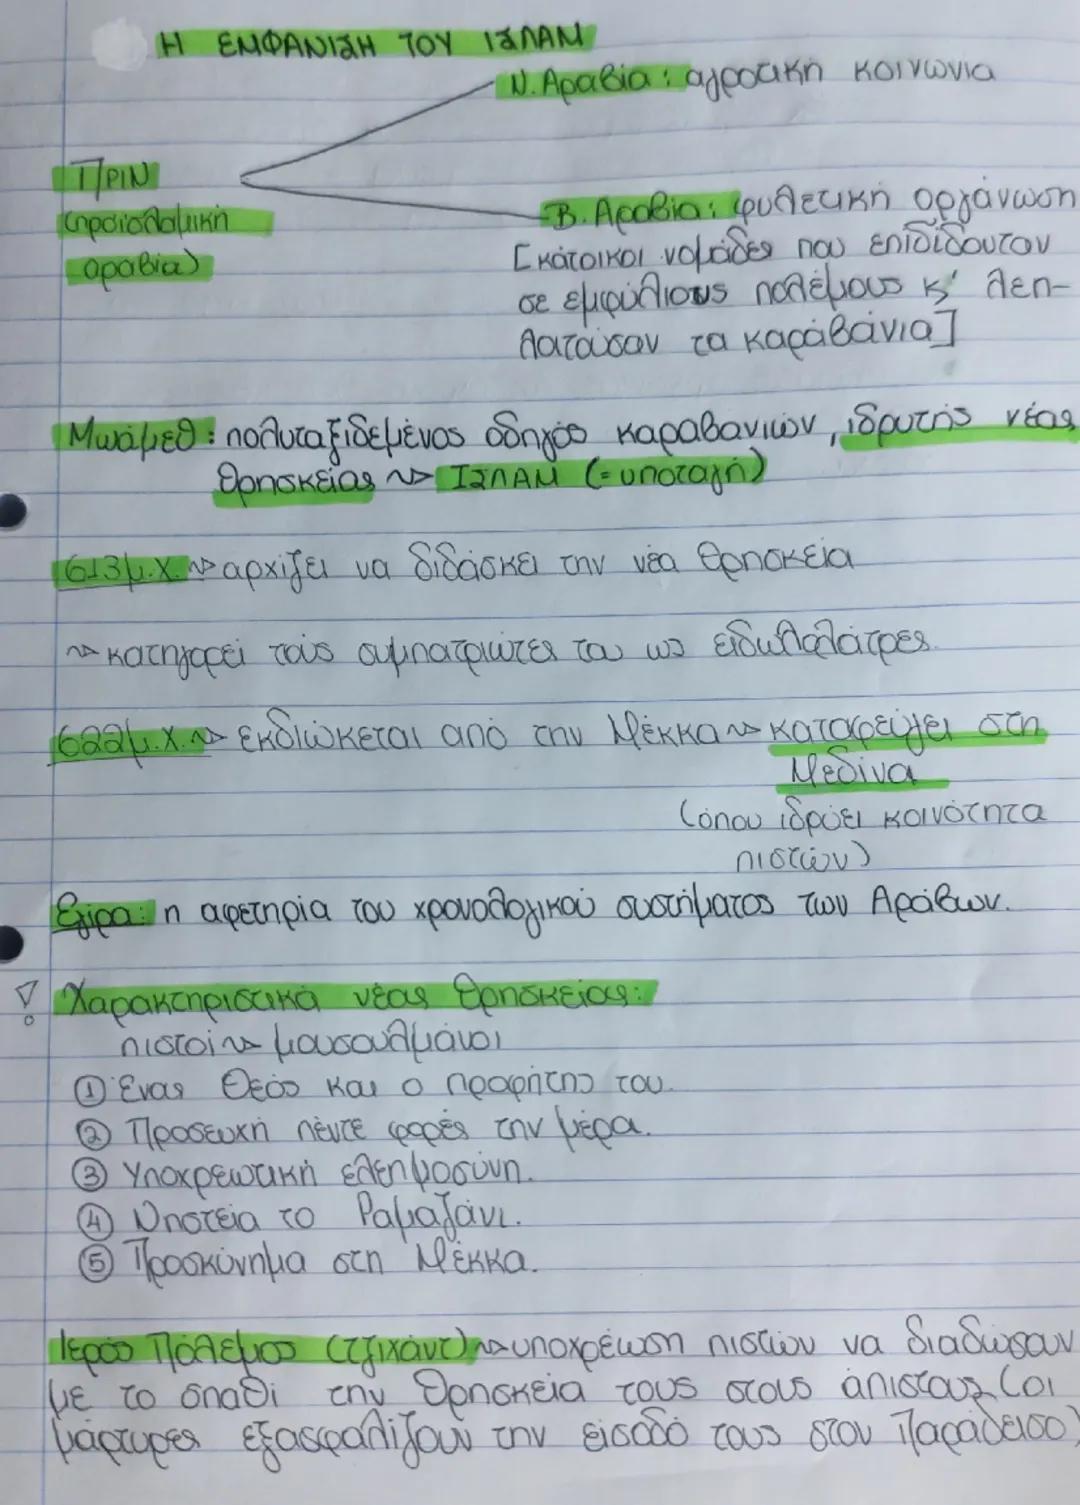 Η ΕΜΦΑΝΙΣΗ ΤΟΥ ΙΣΛΑΜ
Ν. Αραβία: αγροτική κοινωνία
ΠΡΙΝ
(προϊσλαμική
αραβία)
Β. Αραβία: φυλετική οργάνωση
[κάτοικοι νομάδες που επιδίδονταν
σε εμφύλιους πολέμους κ' λεη-
λατούσαν τα καράβάνια]
Μωάμεθ: πολυταξιδεμένος οδηγός καραβανιών, ιδρυτής νέας
θρησκείας ~> ΙΣΛΑΜ (=υποταγή)
613μ.Χ. ~> αρχίζει να διδάσκει την νέα θρησκεία
~> κατηγορεί τους συμπατριώτες του ως ειδωλολάτρες.
622μ.Χ. ~> εκδιώκεται από την Μέκκα ~> καταφεύγει στη
Μεδίνα
(όπου ιδρύει κοινότητα
πιστών)
Εγίρα: η αφετηρία του χρονολογικού συστήματος των Αράβων.
! Χαρακτηριστικά νέας θρησκείας:
πιστοί ~> μουσουλμάνοι
① Ένας Θεός και ο προφήτης του.
② Προσευχή πέντε φορές την μέρα.
③ Υποχρεωτική ελεημοσύνη.
④ Νηστεία το Ραμαζάνι.
⑤ Προσκύνημα στη Μέκκα.
Ιερός Πόλεμος (τζιχάντ) ~> υποχρέωση πιστών να διαδώσουν
με το σπαθί την θρησκεία τους στους άπιστους (οι
μάρτυρες εξασφαλίζουν την είσοδό τους στον Παράδεισο)